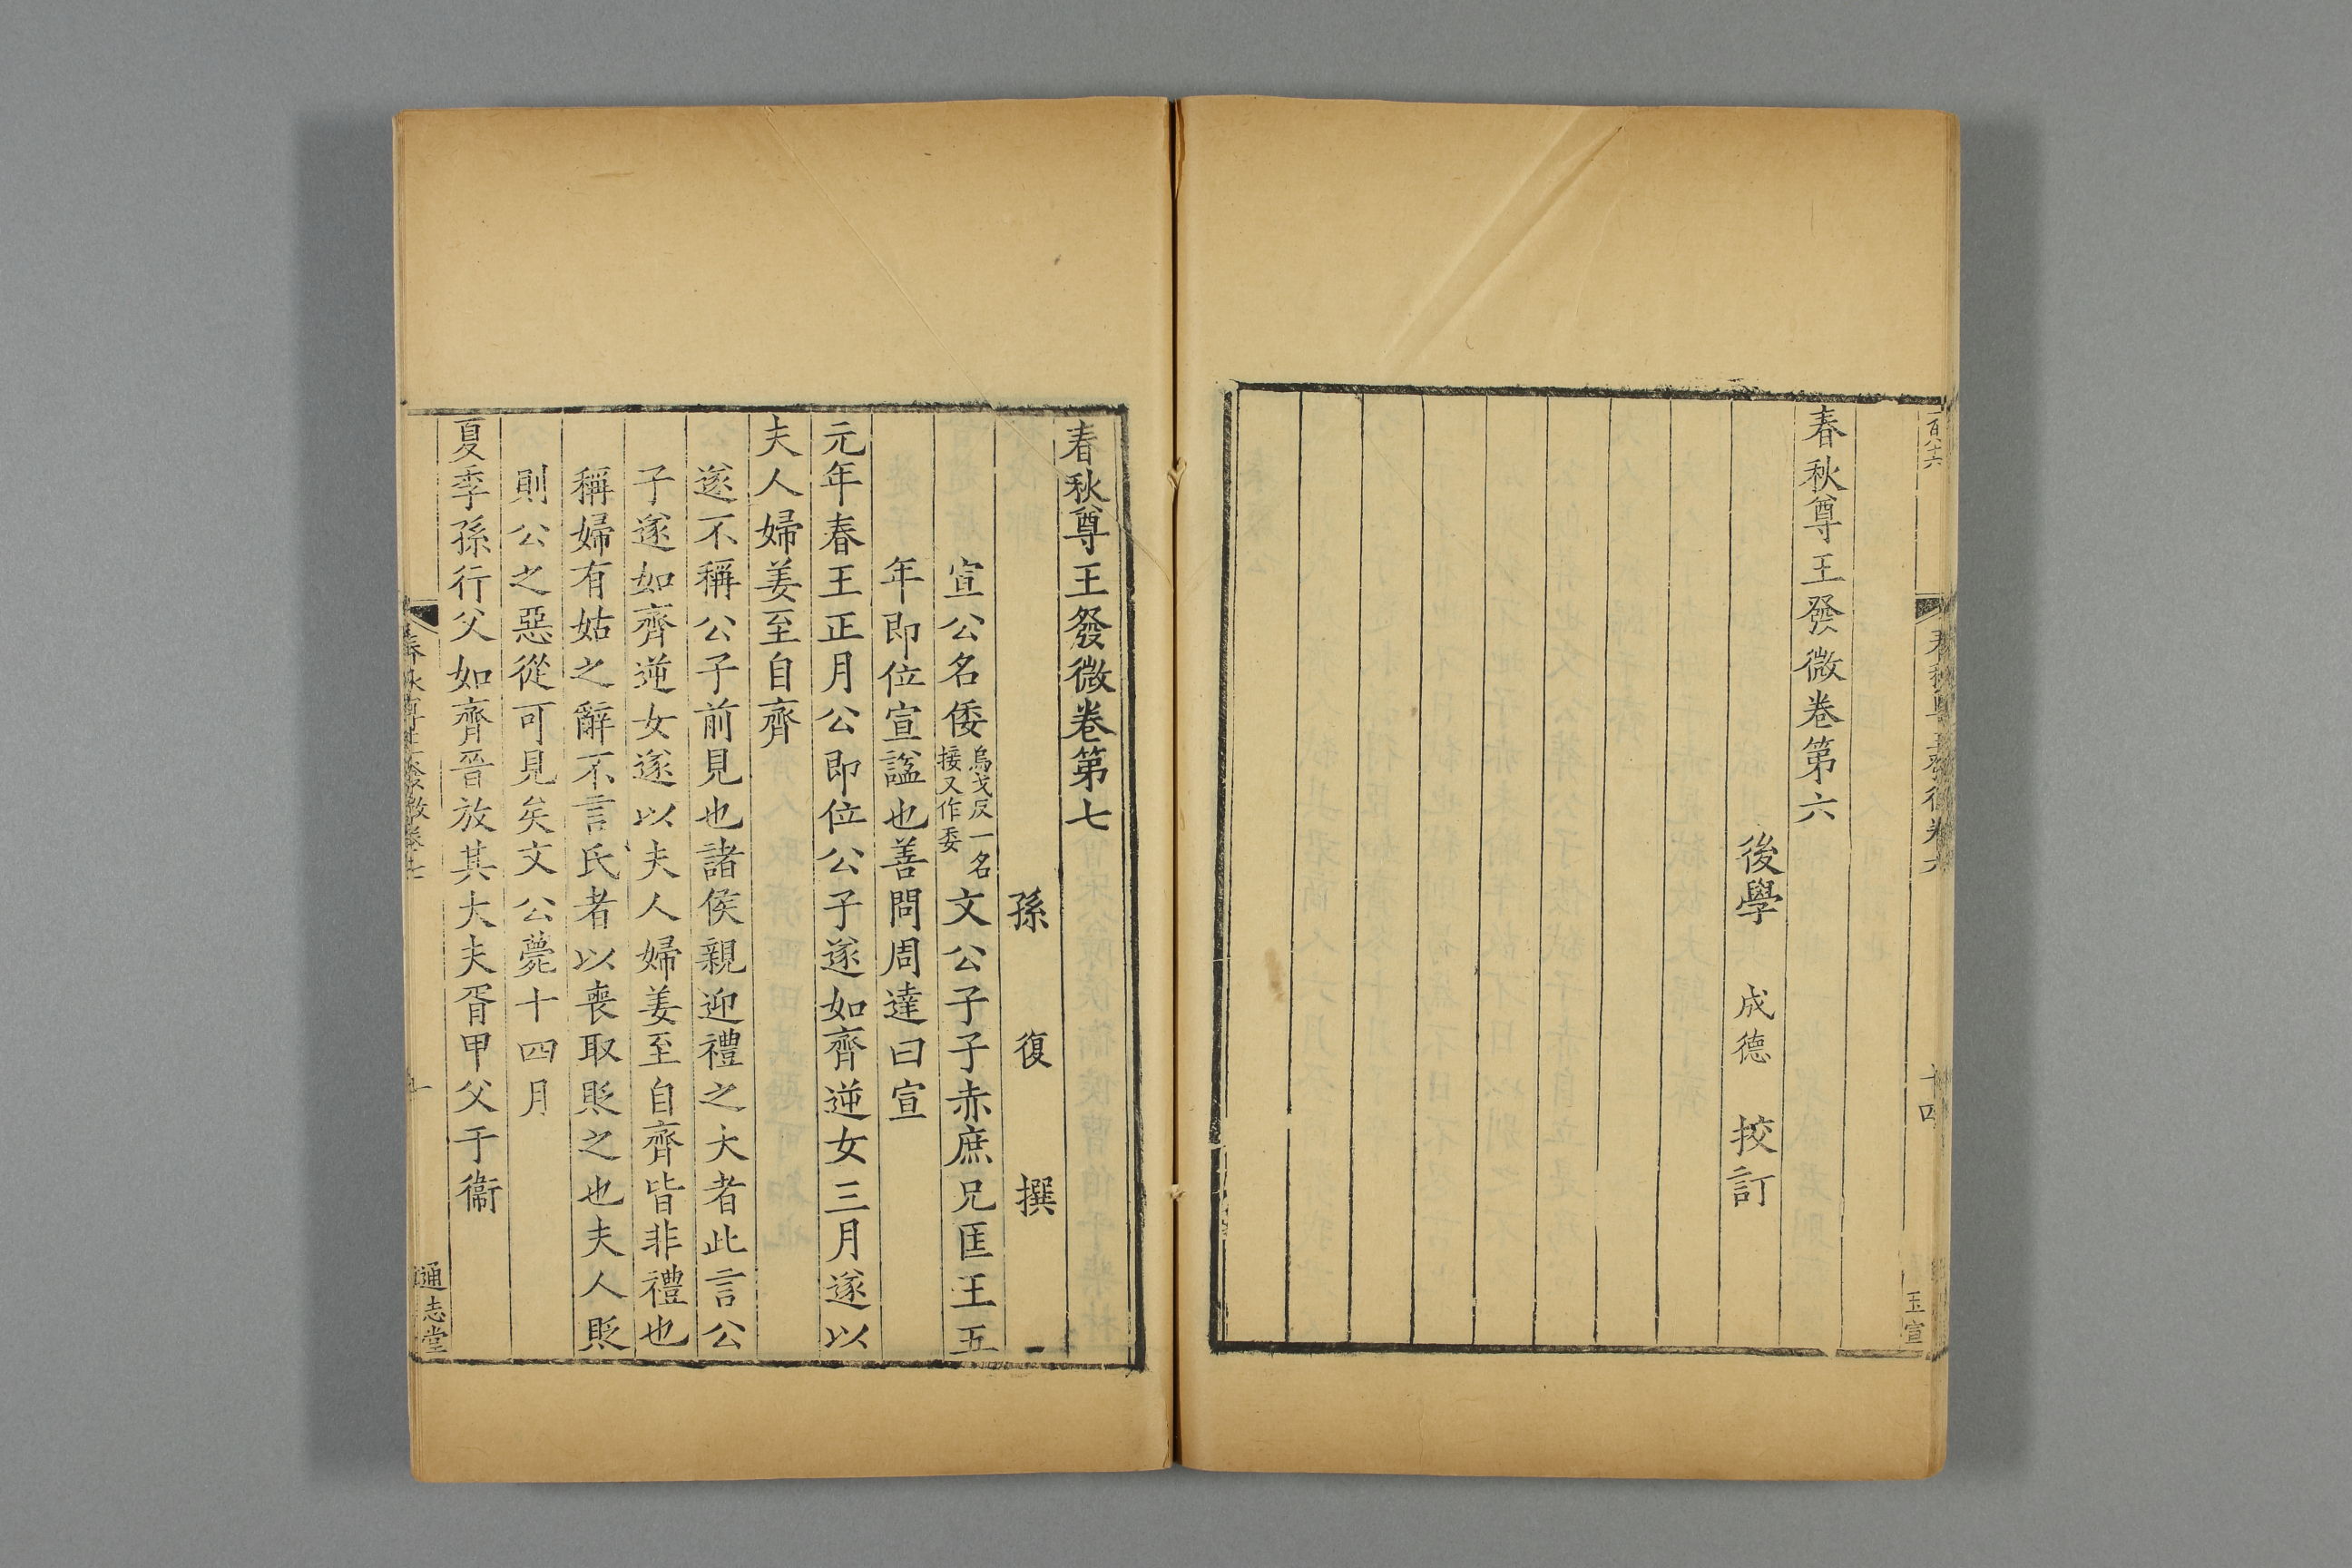 百八十六
春秋尊王發微卷六
十四
玉宣
春秋尊王發微卷第六
後學 成德 挍訂
春秋尊王發微卷第七
孫 復 撰
宣公名倭烏戈反一名接又作委文公子子赤庶兄匡王五
年即位宣諡也善問周達曰宣
元年春王正月公即位公子遂如齊逆女三月遂以
夫人婦姜至自齊
遂不稱公子前見也諸侯親迎禮之大者此言公
子遂如齊逆女遂以夫人婦姜至自齊皆非禮也
稱婦有姑之辭不言氏者以喪取貶之也夫人貶
則公之惡從可見矣文公薨十四月
夏季孫行父如齊晉放其大夫胥甲父于衞
春秋尊王發微卷七
一
通志堂